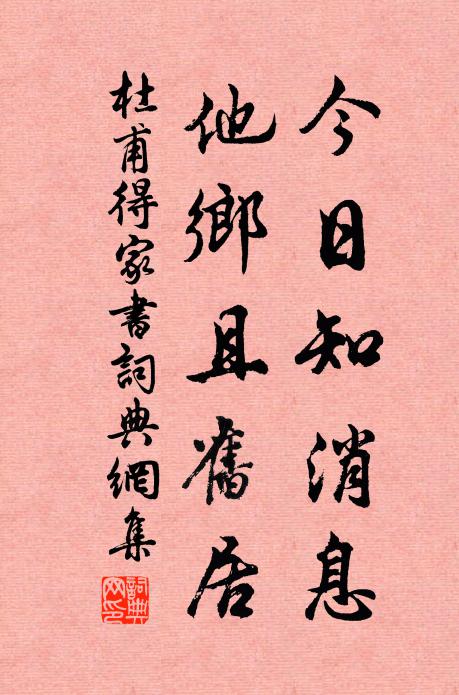 今日知消息
他鄉且舊居
杜甫得家書詞典網集
詞典網印